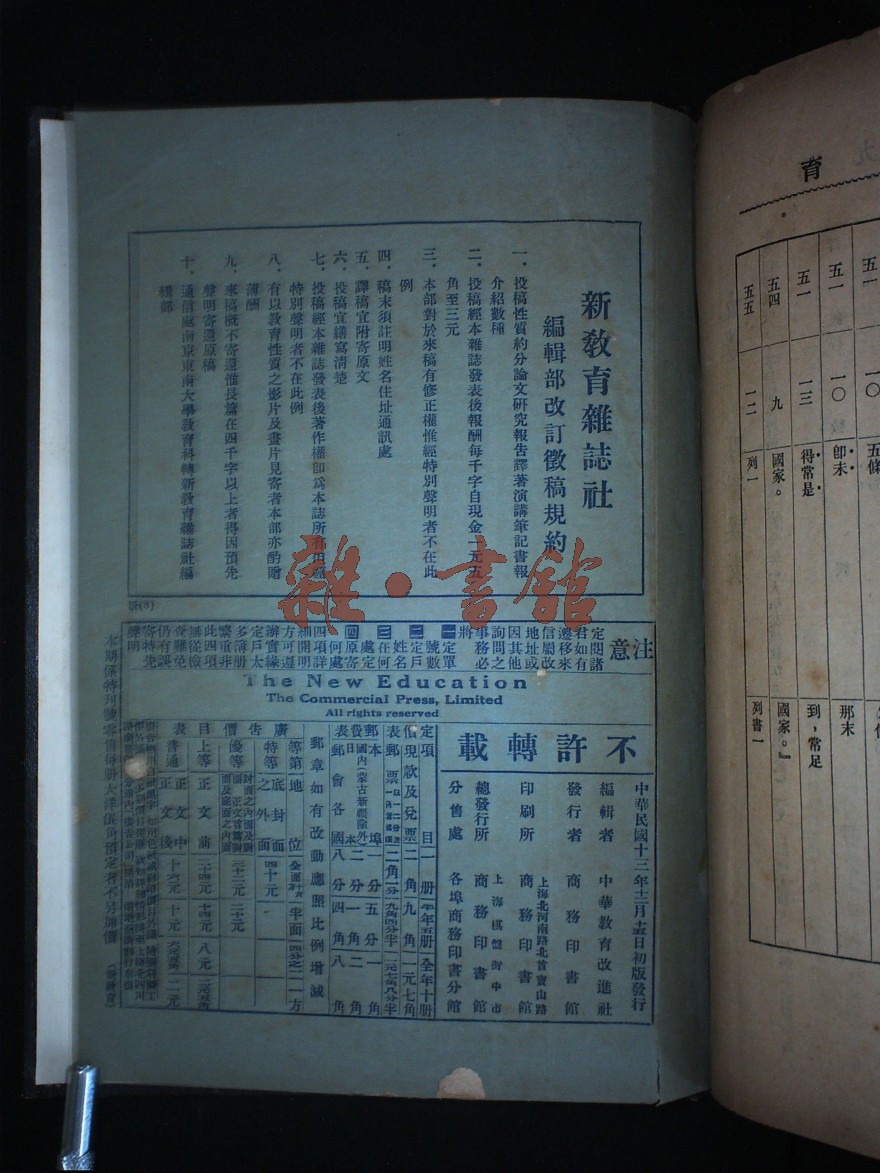 新教育雜誌社
編輯部改訂徵稿規約
一．投稿性質約分論文研究報告譯著演講筆記書報
介紹數種
二．投稿經本雜誌發表後報酬每千字自現金一元五
角至三元
三．本部對於來稿有修正權惟經特別聲明者不在此
例
四．稿末須註明姓名住址通訊處
五．譯稿宜附寄原文
六．投稿宜繕寫清楚
七．投稿經本雜誌發表後著作權卽爲本誌所有
特別聲明者不在此例
八．有以教育性質之影片及畫片見寄者本部亦酌贈
薄酬
九．來稿概不寄還惟長篇在四千字以上者得因預先
聲明寄還原稿
十．通信處南京東南大學教育科轉新教育雜誌社編
輯部
注意
定閱諸
君如有
遷移來
信屬改
地址或
因其他
詢問之
事務必
將
一定單
號數
二定戶
姓名
三在何
處定
四原寄
何處
四項詳
細開明
方可遵
辦實緣
定戶太
多簿册
繁重非
此四項
無從檢
查難免
仍有誤
寄特先
聲明
The New Education
The Commercial Press, Limited
All rights reserved
不許轉載
中華民國十三年十二月十五日初版發行
編輯者 中華教育改進社
發行者 商務印書館
印刷所 上海北河南路北首寶山路 商務印書館
總發行所 上海棋盤街中市 商務印書館
分售處 各埠商務印書分館
定價表
項目 一册 半年五册 全年十册
現款及兌票 二角 九角 一元七角
郵費
本埠
國內(蒙古新疆除外)
日本
郵會各國 八分 四角 八角
郵章如有改動應照比例增減
廣告價目表
等第 地位 全面 半面
特等 底封面之外面 四十元
優等 三十二元 二十元
上等 正文前 二十四元 十四元 八元
普通 正文中 正文後 十六元 十元
育
五一 一〇 五條
五一 一〇 卽末 那末
五一 一三 得常是 到，常足
五四 九 國家。 國家。』
五五 一二 列一 列書一
雜·書館